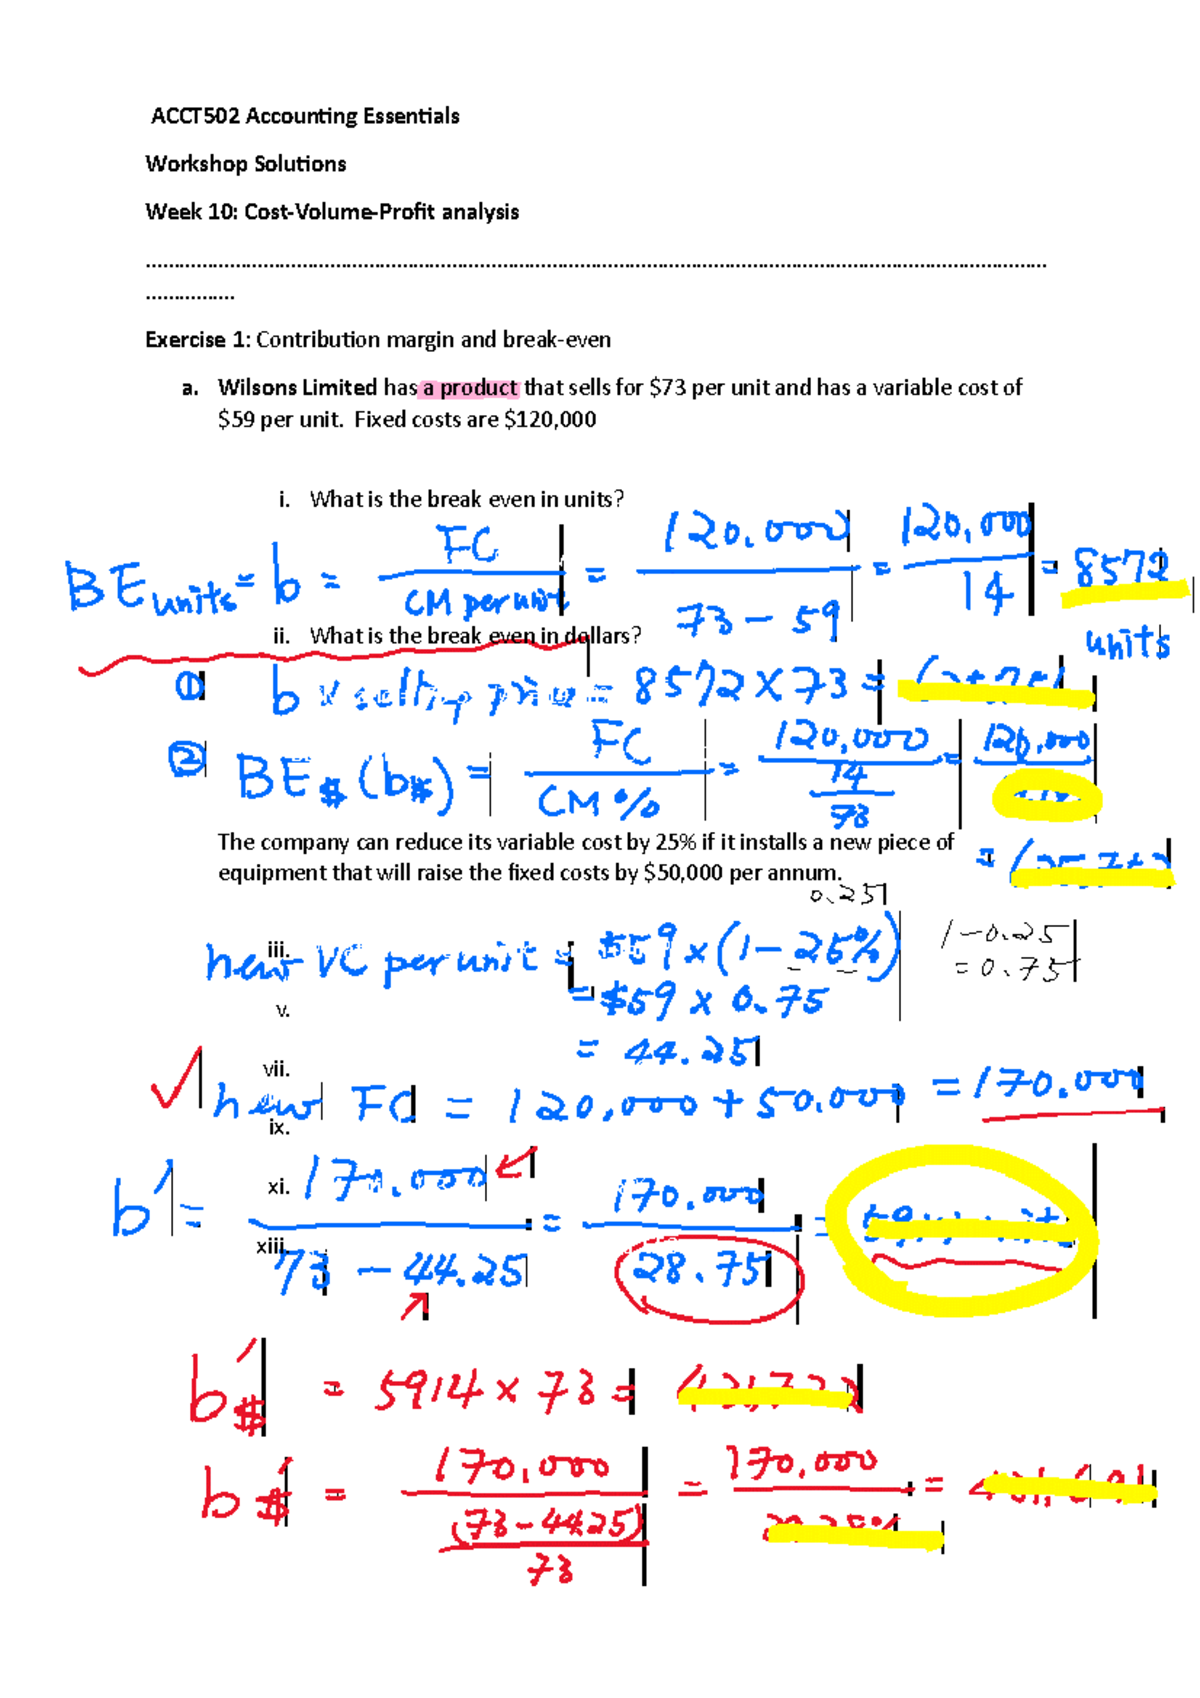 ACCT502 Accounting Essentials
Workshop Solutions
Week 10: Cost-Volume-Profit analysis
Exercise 1: Contribution margin and break-even
a. Wilsons Limited has a product that sells for $73 per unit and has a variable cost of
$59 per unit. Fixed costs are $120,000
i. What is the break even in units?
BE units = b = FC / CM per unit = 120.000 / 73 - 59 = 120,000 / 14 = 8572 units
ii. What is the break even in dollars?
① b x selling price = 8572 x 73 =
② BE$ (b$) = FC / CM% = 120,000 / 14/73 = 120,000 /
=
The company can reduce its variable cost by 25% if it installs a new piece of
equipment that will raise the fixed costs by $50,000 per annum.
0.25
iii. new VC per unit = $59 x (1 - 25%)
1 - 0.25
= 0.75
v. = $59 x 0.75
= 44.25
vii.
new FC = 120,000 + 50.000 = 170.000
ix.
xi. b' = 170.000 / 73 - 44.25 = 170.000 / 28.75 =
xiii.
b'$ = 5914 x 73 =
b'$ = 170,000 / (73 - 44.25)/73 = 170,000 / =